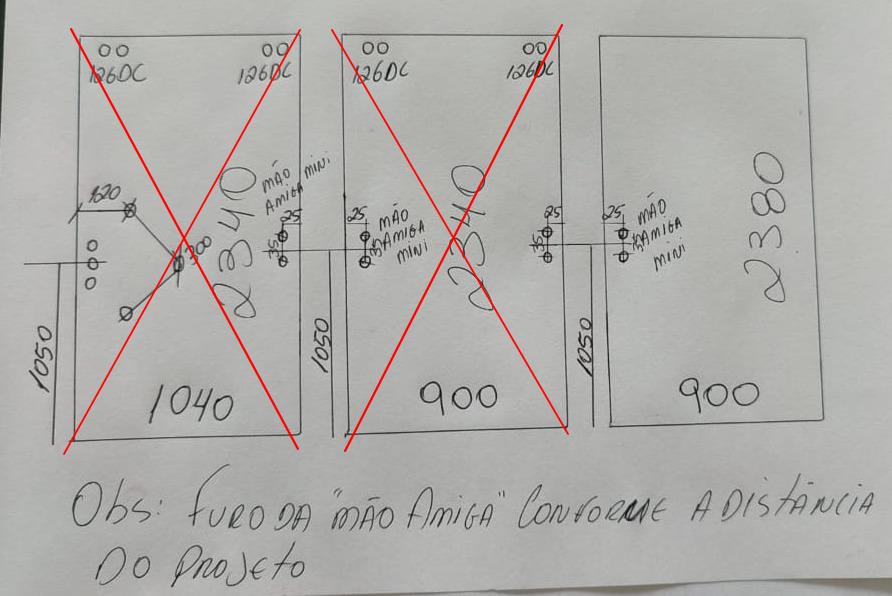 126DC
126DC
620
300
2340
MÃO MINI
AMIGA
25
35
1050
1040
126DC
126DC
25
MÃO
AMIGA
MINI
35
2340
25
35
1050
900
25
MÃO
AMIGA
MINI
35
2380
1050
900
Obs: FURO DA "MÃO AMIGA" CONFORME A DISTÂNCIA
DO PROJETO